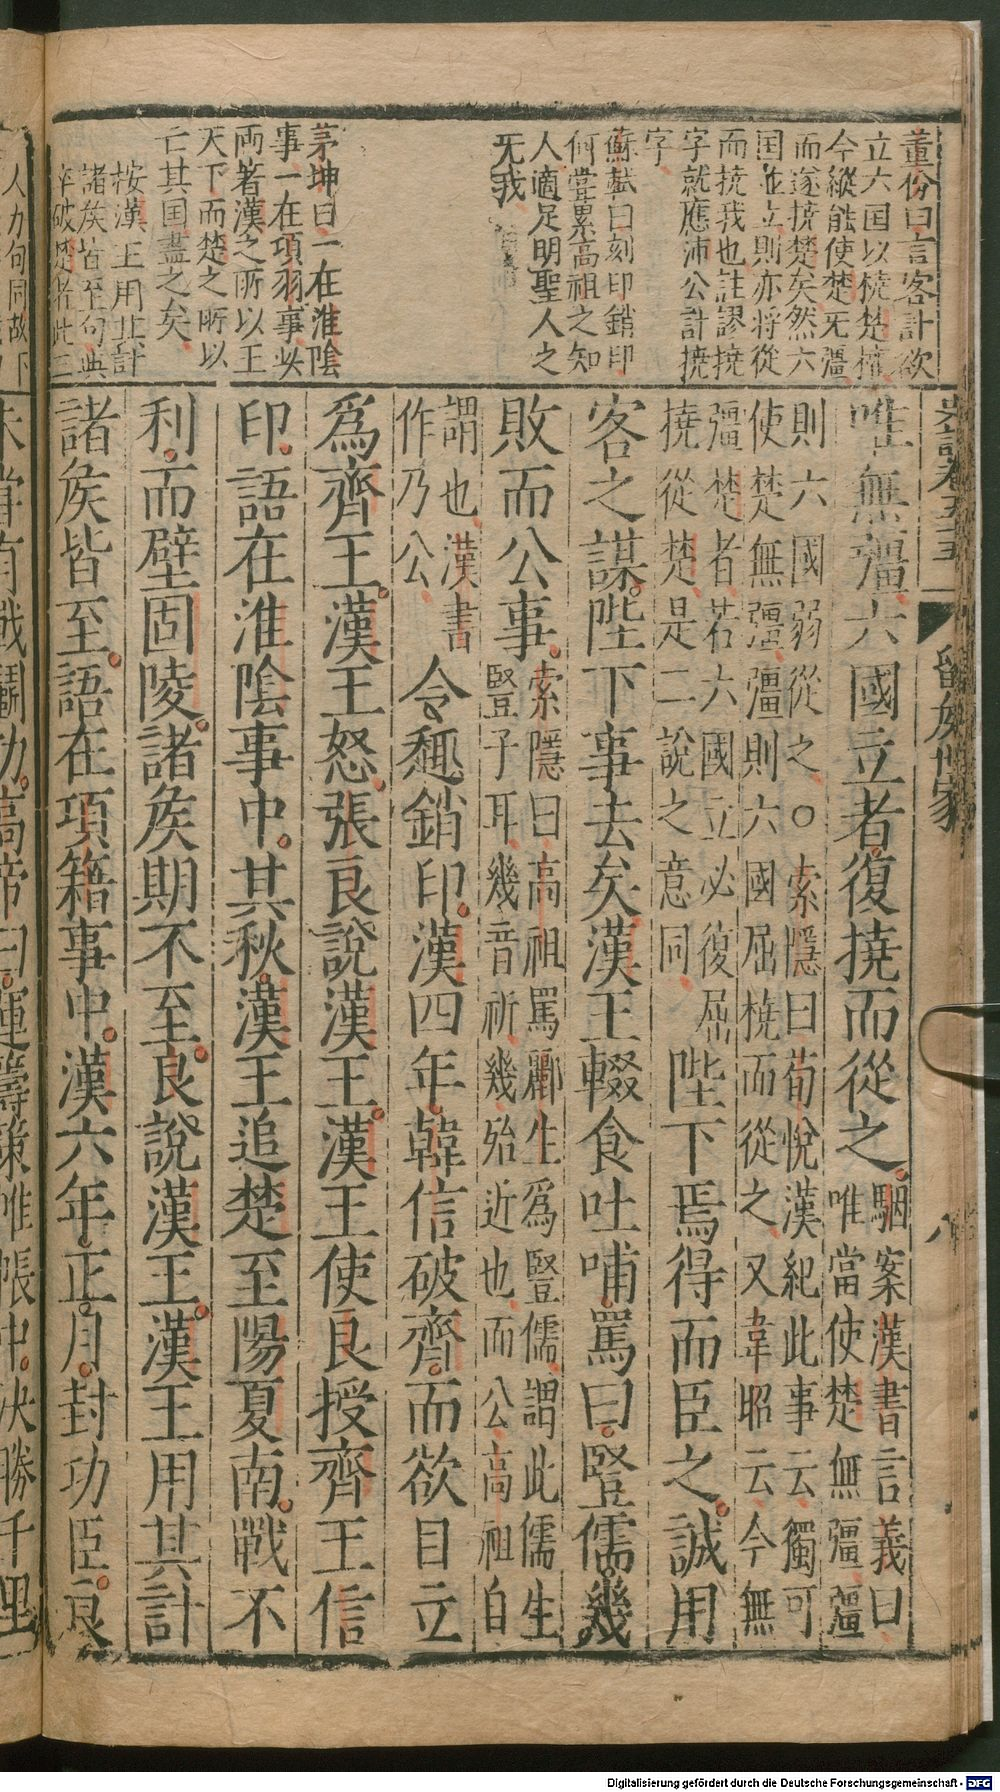 史記卷五十五
留矦世家
八
董份曰言客計欲
立六国以撓楚權
今縱能使楚无彊
而遂撓楚矣然六
国並立則亦将從
而撓我也註謬撓
字就應沛公計撓
字
蘇軾曰刻印銷印
何嘗累高祖之知
人適足明聖人之
无我
茅坤曰一在淮陰
事一在項羽事此
両著漢之所以王
天下而楚之所以
亡其国盡之矣
桉漢王用其計
諸矦皆至句典
卒破楚者此三
人力句同故下
唯無彊六國立者復撓而從之
駰案漢書音義曰
唯當使楚無彊彊
則六國弱從之○索隱曰荀悅漢紀此事云獨可
使楚無彊彊則六國屈撓而從之又韋昭云今無
彊楚者若六國立必復屈
撓從楚是二說之意同
陛下焉得而臣之誠用
客之謀陛下事去矣漢王輟食吐哺罵曰豎儒幾
敗而公事
索隱曰高祖罵酈生爲豎儒謂此儒生
豎子耳幾音祈幾殆近也而公高祖自
謂也漢書
作乃公
令趣銷印漢四年韓信破齊而欲自立
爲齊王漢王怒張良說漢王漢王使良授齊王信
印語在淮陰事中其秋漢王追楚至陽夏南戰不
利而壁固陵諸矦期不至良說漢王漢王用其計
諸矦皆至語在項籍事中漢六年正月封功臣良
未嘗有戰鬭功高帝曰運籌策帷帳中決勝千里
Digitalisierung gefördert durch die Deutsche Forschungsgemeinschaft - DFG